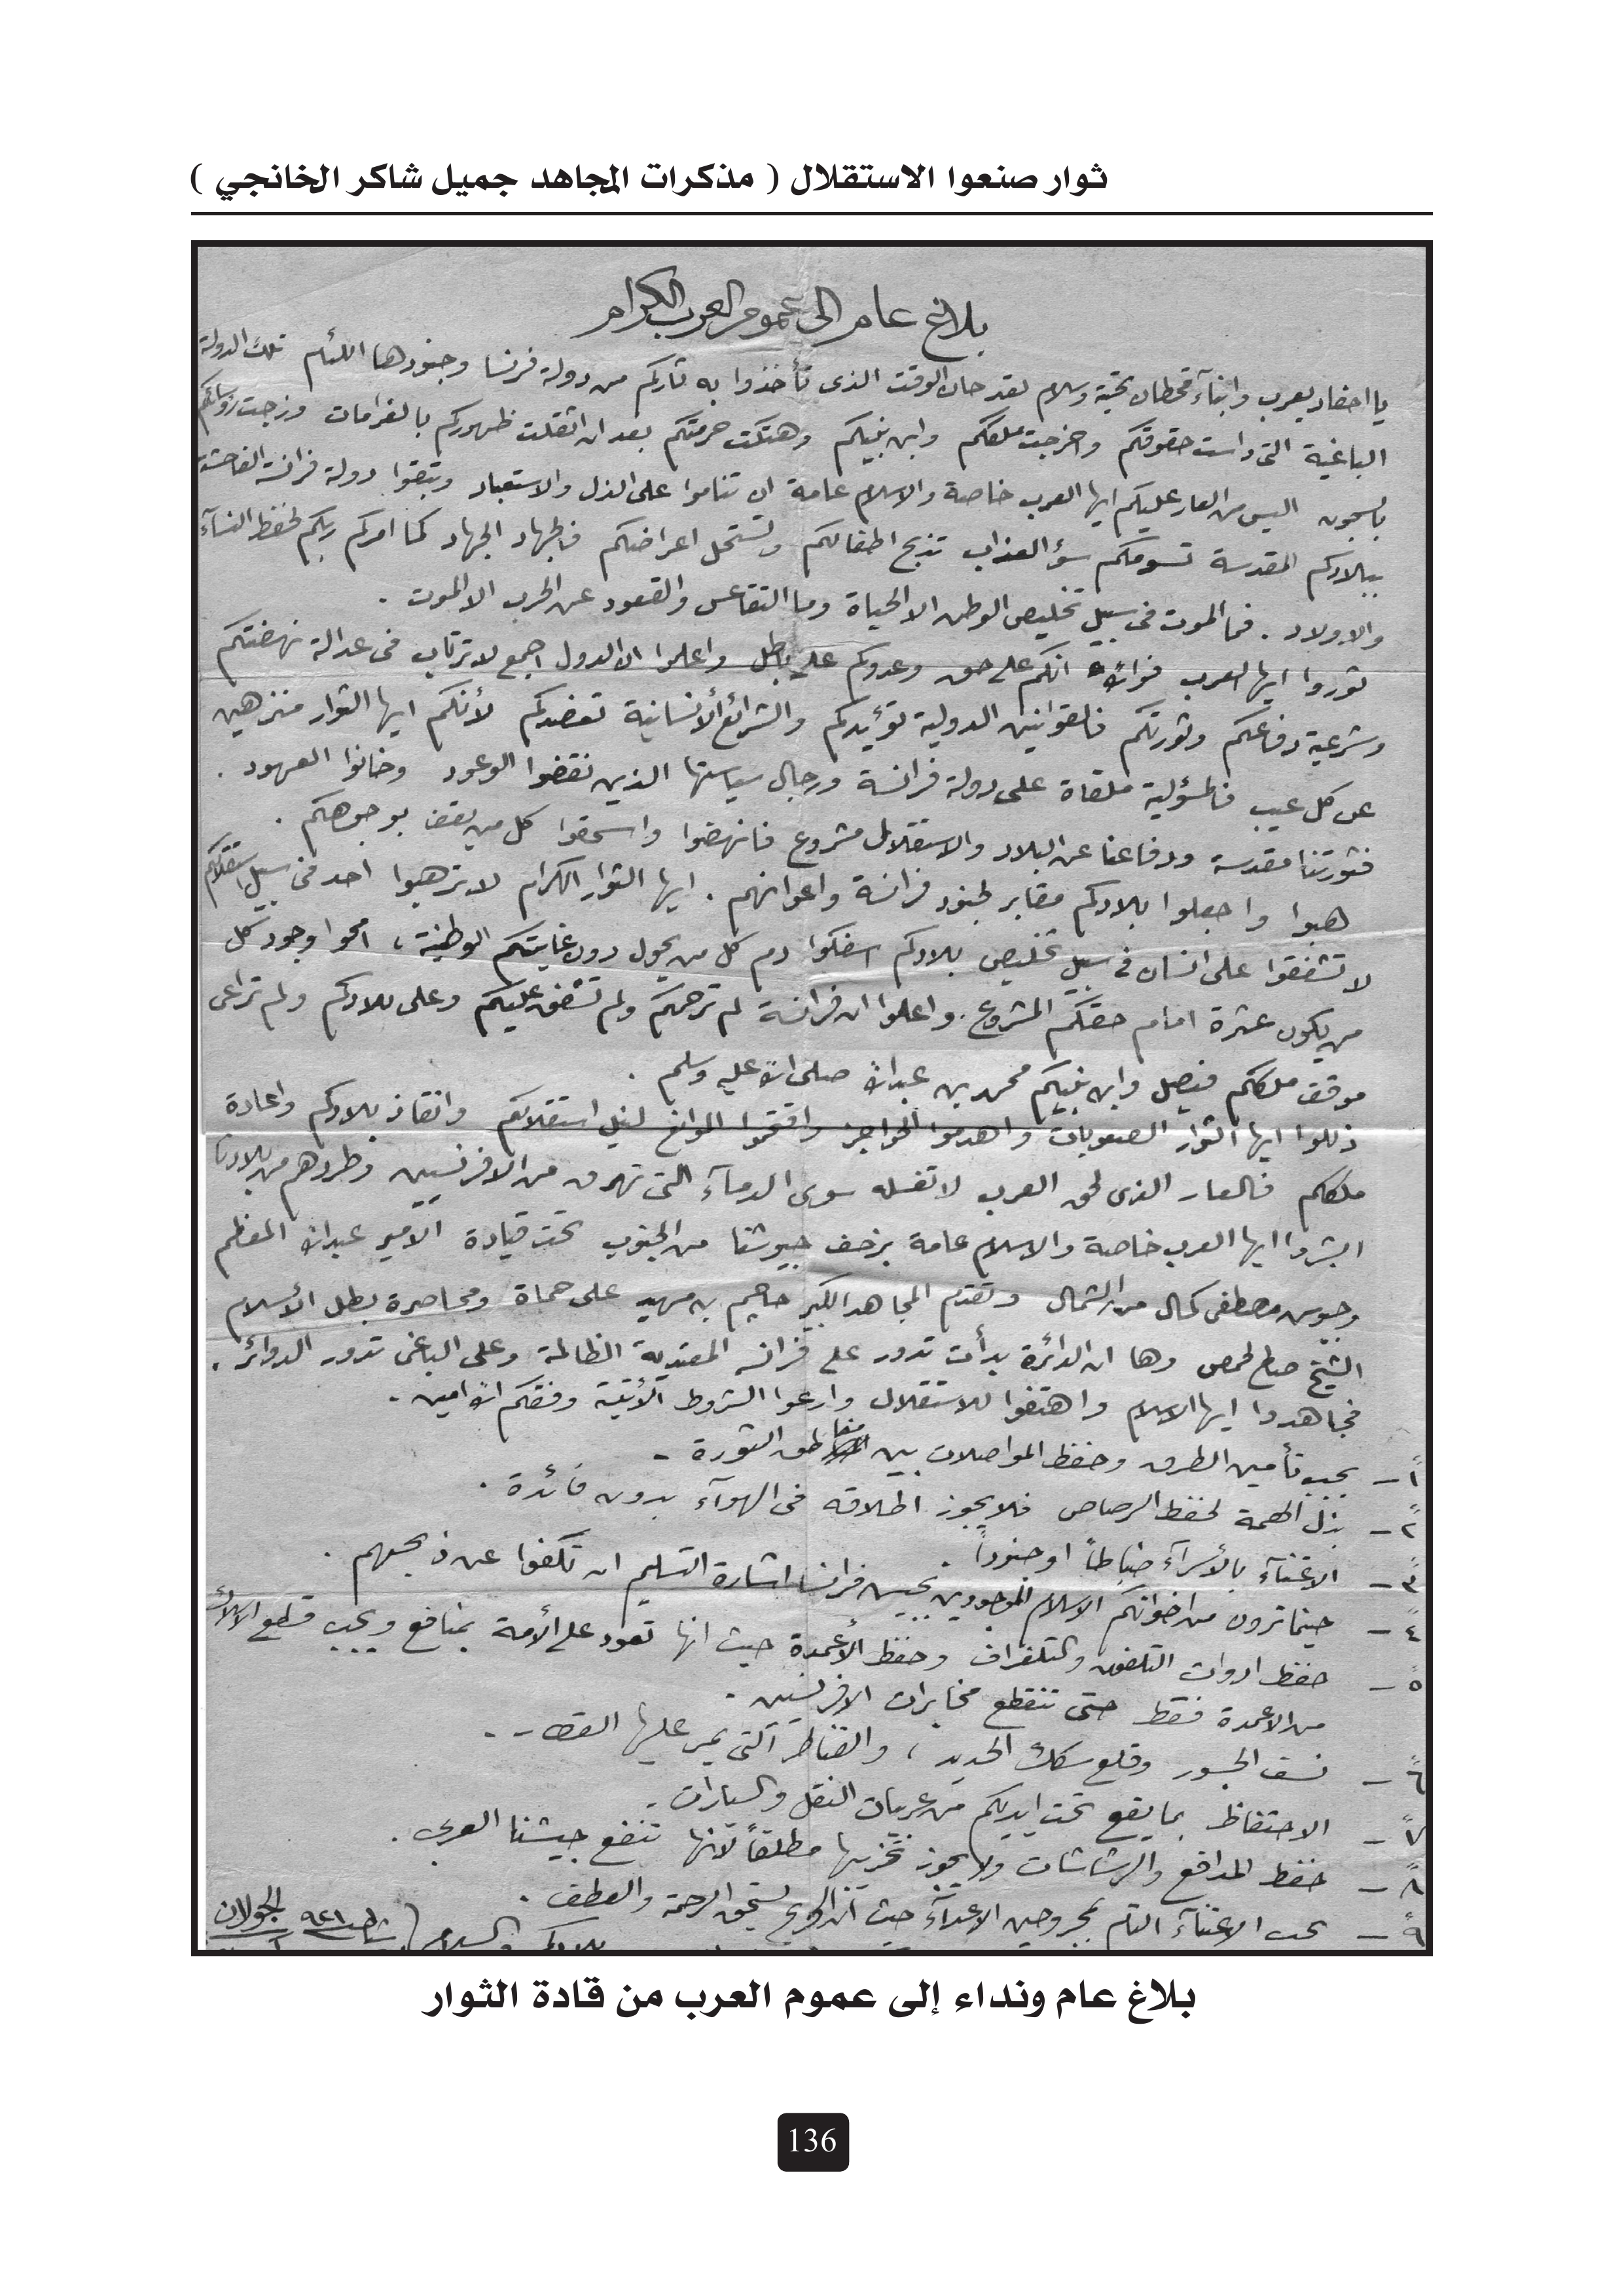 ثوار صنعوا الاستقلال ( مذكرات المجاهد جميل شاكر الخانجي )
بلاغ عام الى عموم العرب الكرام
يا احفاد يعرب وابنآء قحطان تحية وسلام لقد حان الوقت الذى تأخذوا به ثأركم من دولة فرنسا وجنودها اللئام تلك الدولة
الباغية التى داست حقوقكم واخرجت ملككم وابن نبيكم وهتكت حرمتكم بعد ان اثقلت ظهوركم بالغرامات وزجت رؤسائكم
بالسجون اليس من العار عليكم ايها العرب خاصة والاسلام عامة ان تناموا على الذل والاستعباد وتبقوا دولة فرانسة الفاحشة
ببلادكم المقدسة تسومكم سؤ العذاب تذبح اطفالكم وتستحل اعراضكم فالجهاد الجهاد كما امركم ربكم لحفظ النسآء
والاولاد . فما الموت فى سبيل تخليص الوطن الا الحياة وما التقاعس والقعود عن الحرب الا الموت .
ثوروا ايها العرب فوالله انكم على حق وعدوكم على باطل واعلموا ان الدول اجمع لا ترتاب فى عدالة نهضتكم
وشرعية دفاعكم وثورتكم فالقوانين الدولية تؤيدكم والشرائع الأنسانية تعضدكم لأنكم ايها الثوار منزهين
عن كل عيب فالمسؤلية ملقاة على دولة فرانسة ورجال سياستها الذين نقضوا الوعود وخانوا العهود .
فثورتنا مقدسة ودفاعنا عن البلاد والاستقلال مشروع فانهضوا واسحقوا كل من يقف بوجوهكم .
هبوا واجعلوا بلادكم مقابر لجنود فرانسة واعوانهم . ايها الثوار الكرام لا ترهبوا احد فى سبيل استقلالكم
لا تشفقوا على انسان فى سبيل تخليص بلادكم اسفكوا دم كل من يحول دون غايتكم الوطنية ، امحوا وجود كل
من يكون عثرة امام حقكم المشروع . واعلموا ان فرانسة لم ترحمكم ولم تشفق عليكم وعلى بلادكم ولم تراعى
موقف ملككم فيصل وابن نبيكم محمد بن عبدالله صلى الله عليه وسلم .
ذللوا ايها الثوار الصعوبات واهدموا الحواجز واقتحموا الموانع لنيل استقلالكم وانقاذ بلادكم واعادة
ملككم فالعار الذى لحق العرب لا تغسله سوى الدمآء التى تهرق من الافرنسيين وطردهم من بلادنا
ابشروا ايها العرب خاصة والاسلام عامة بزحف جيوشنا من الجنوب تحت قيادة الامير عبدالله المعظم
وجيوش مصطفى كمال من الشمال وتقدم المجاهد الكبير حاجم بن مهيد على حماة ومحاصرة بطل الأسلام
الشيخ صالح لحمص وها ان الدائرة بدأت تدور على فرانسه المعتدية الظالمة وعلى الباغى تدور الدوائر .
فجاهدوا ايها الاسلام واهتفوا للاستقلال وارعوا الشروط الأتية وفقكم الله امين .
١ – يجب تأمين الطرق وحفظ المواصلات بين مناطق الثورة .
٢ – بذل الهمة لحفظ الرصاص فلا يجوز اطلاقه فى الهوآء بدون فائدة .
٣ – الاعتنآء بالأسرآء ضباطاً او جنوداً .
٤ – حينما ترون من اخوانكم الاسلام الموجودين بجيش فرانسا اشارة التسليم ان تكفوا عن ذبحهم .
٥ – حفظ ادوات التلفون والتلغراف وحفظ الأعمدة حيث انها تعود على الأمة بمنافع ويجب قطع الاسلاك
من الاعمدة فقط حتى تنقطع مخابرات الافرنسيين .
٦ – نسف الجسور وقلع سكك الحديد ، والقناطر التى يمر عليها القطار .
٧ – الاحتفاظ بما يقع تحت ايديكم من عربات النقل والسيارات .
٨ – حفظ المدافع والرشاشات ولا يجوز تخريبها مطلقاً لأنها تنفع جيشنا العربى .
٩ – يجب الاعتنآء التام بمجروحين الاعدآء حيث ان الجريح يستحق الرحمة والعطف .
والسلام
الجولان
بلاغ عام ونداء إلى عموم العرب من قادة الثوار
136